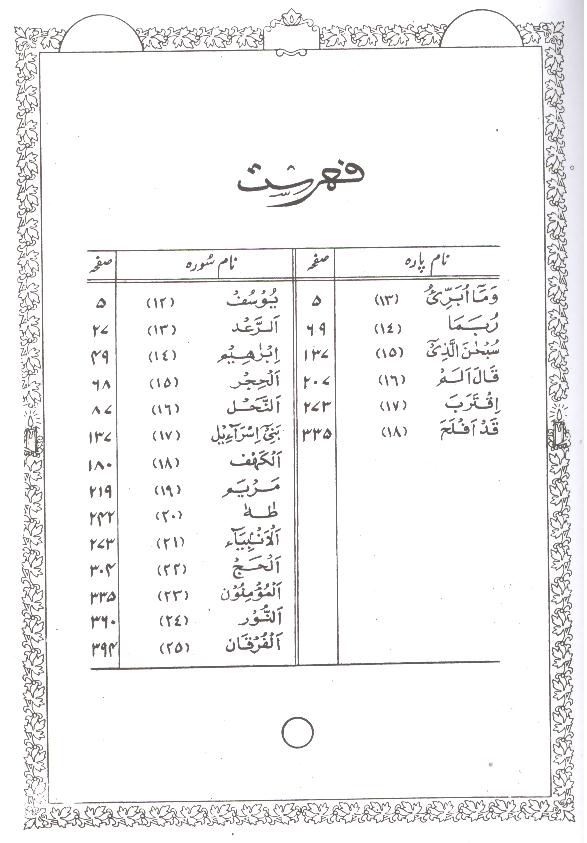 فہرست
نام پارہ صفحہ نام سُورہ صفحہ
وَمَآ اُبَرِّئُ (۱۳) ۵ يُوۡسُفُ (۱۲) ۵
رُبَمَا (۱٤) ۶۹ اَلرَّعۡد (۱۳) ۲۷
سُبۡحٰنَ الَّذِیۡ (۱۵) ۱۳۷ اِبۡرٰهِيۡم (۱٤) ۴۹
قَالَ اَلَمۡ (۱۶) ۲۰۷ اَلۡحِجۡر (۱۵) ۶۸
اِقۡتَرَبَ (۱۷) ۲۷۳ اَلنَّحۡل (۱۶) ۸۷
قَدۡ اَفۡلَحَ (۱۸) ۳۳۵ بَنِیۡٓ اِسۡرَآءِيۡل (۱۷) ۱۳۷
اَلۡكَهۡف (۱۸) ۱۸۰
مَرۡيَم (۱۹) ۲۱۹
طٰهٰ (۲۰) ۲۴۲
اَلۡاَنۡۢبِيَآء (۲۱) ۲۷۳
اَلۡحَجّ (۲۲) ۳۰۴
اَلۡمُؤۡمِنُوۡن (۲۳) ۳۳۵
اَلنُّوۡر (۲٤) ۳۶۰
اَلۡفُرۡقَان (۲۵) ۳۹۴